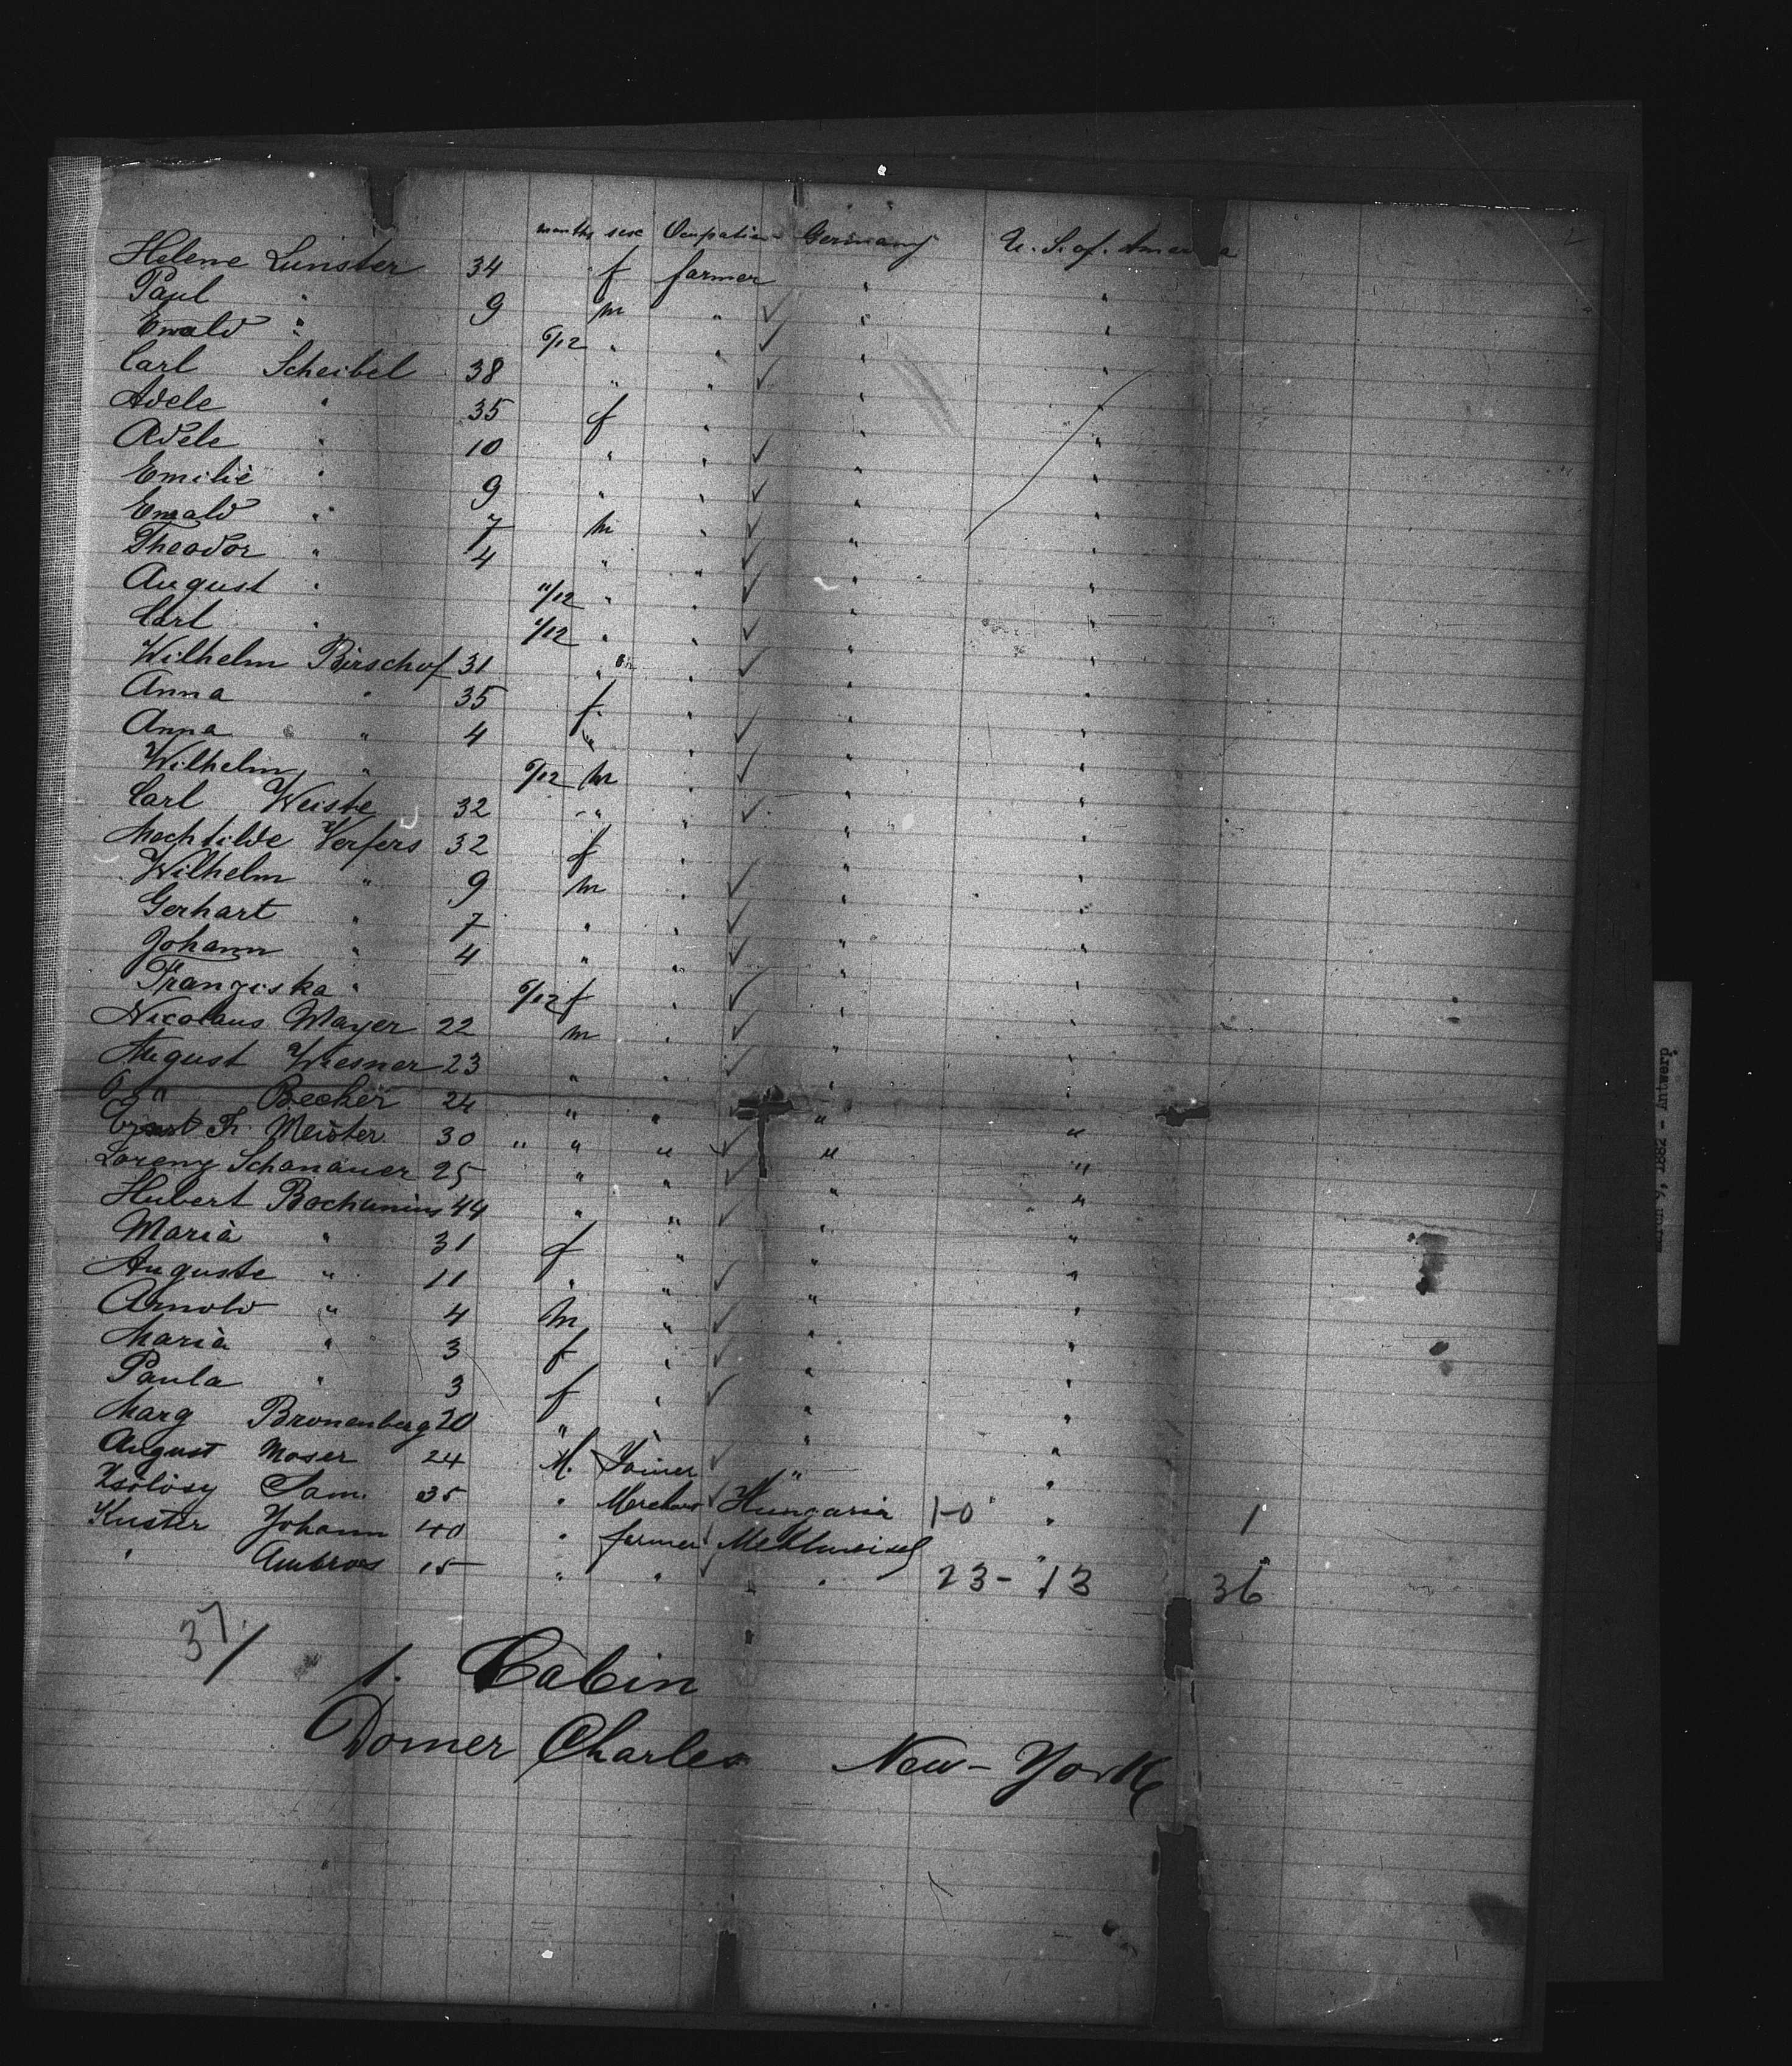 months sex Ocupation Germany U. S. of. America
Helene Lunster 34 f farmer " "
Paul " 9 m " " "
Ewald " 6/12 " " " "
Carl Scheibel 38 " " " "
Adele " 35 f " " "
Adele " 10 " " " "
Emilie " 9 " " " "
Ewald " 7 m " " "
Theodor " 4 " " " "
August " 11/12 " " " "
Carl " 1/12 " " " "
Wilhelm Birschof 31 " " " "
Anna " 35 f " " "
Anna " 4 " " " "
Wilhelm " 6/12 m " " "
Carl Weiste 32 " " " "
Mechtilde Verfers 32 f " " "
Wilhelm " 9 m " " "
Gerhart " 7 " " " "
Johann " 4 " " " "
Franziska " 6/12 f " " "
Nicolaus Mayer 22 m " " "
August Wiesner 23 " " " "
Becher 24 " " " "
Ernst Fr. Meister 30 " " " " "
Lorenz Schanauer 25 " " " "
Hubert 44 " " " "
Maria " 31 f " " "
Auguste " 11 " " " "
Arnold " 4 m " " "
Maria " 3 f " " "
Paula " 3 f " " "
Marg Bronenberg 20 " " " "
August Moser 24 M. Joiner " "
Sam. 35 " Merchant Hungaria 1-0 " 1
Kuster Johann 40 " farmer "
" Ambros 15 " " " 23-13 36
37/
1. Cabin
Domer Charles New-York
March 9, 1882 - Antwerp